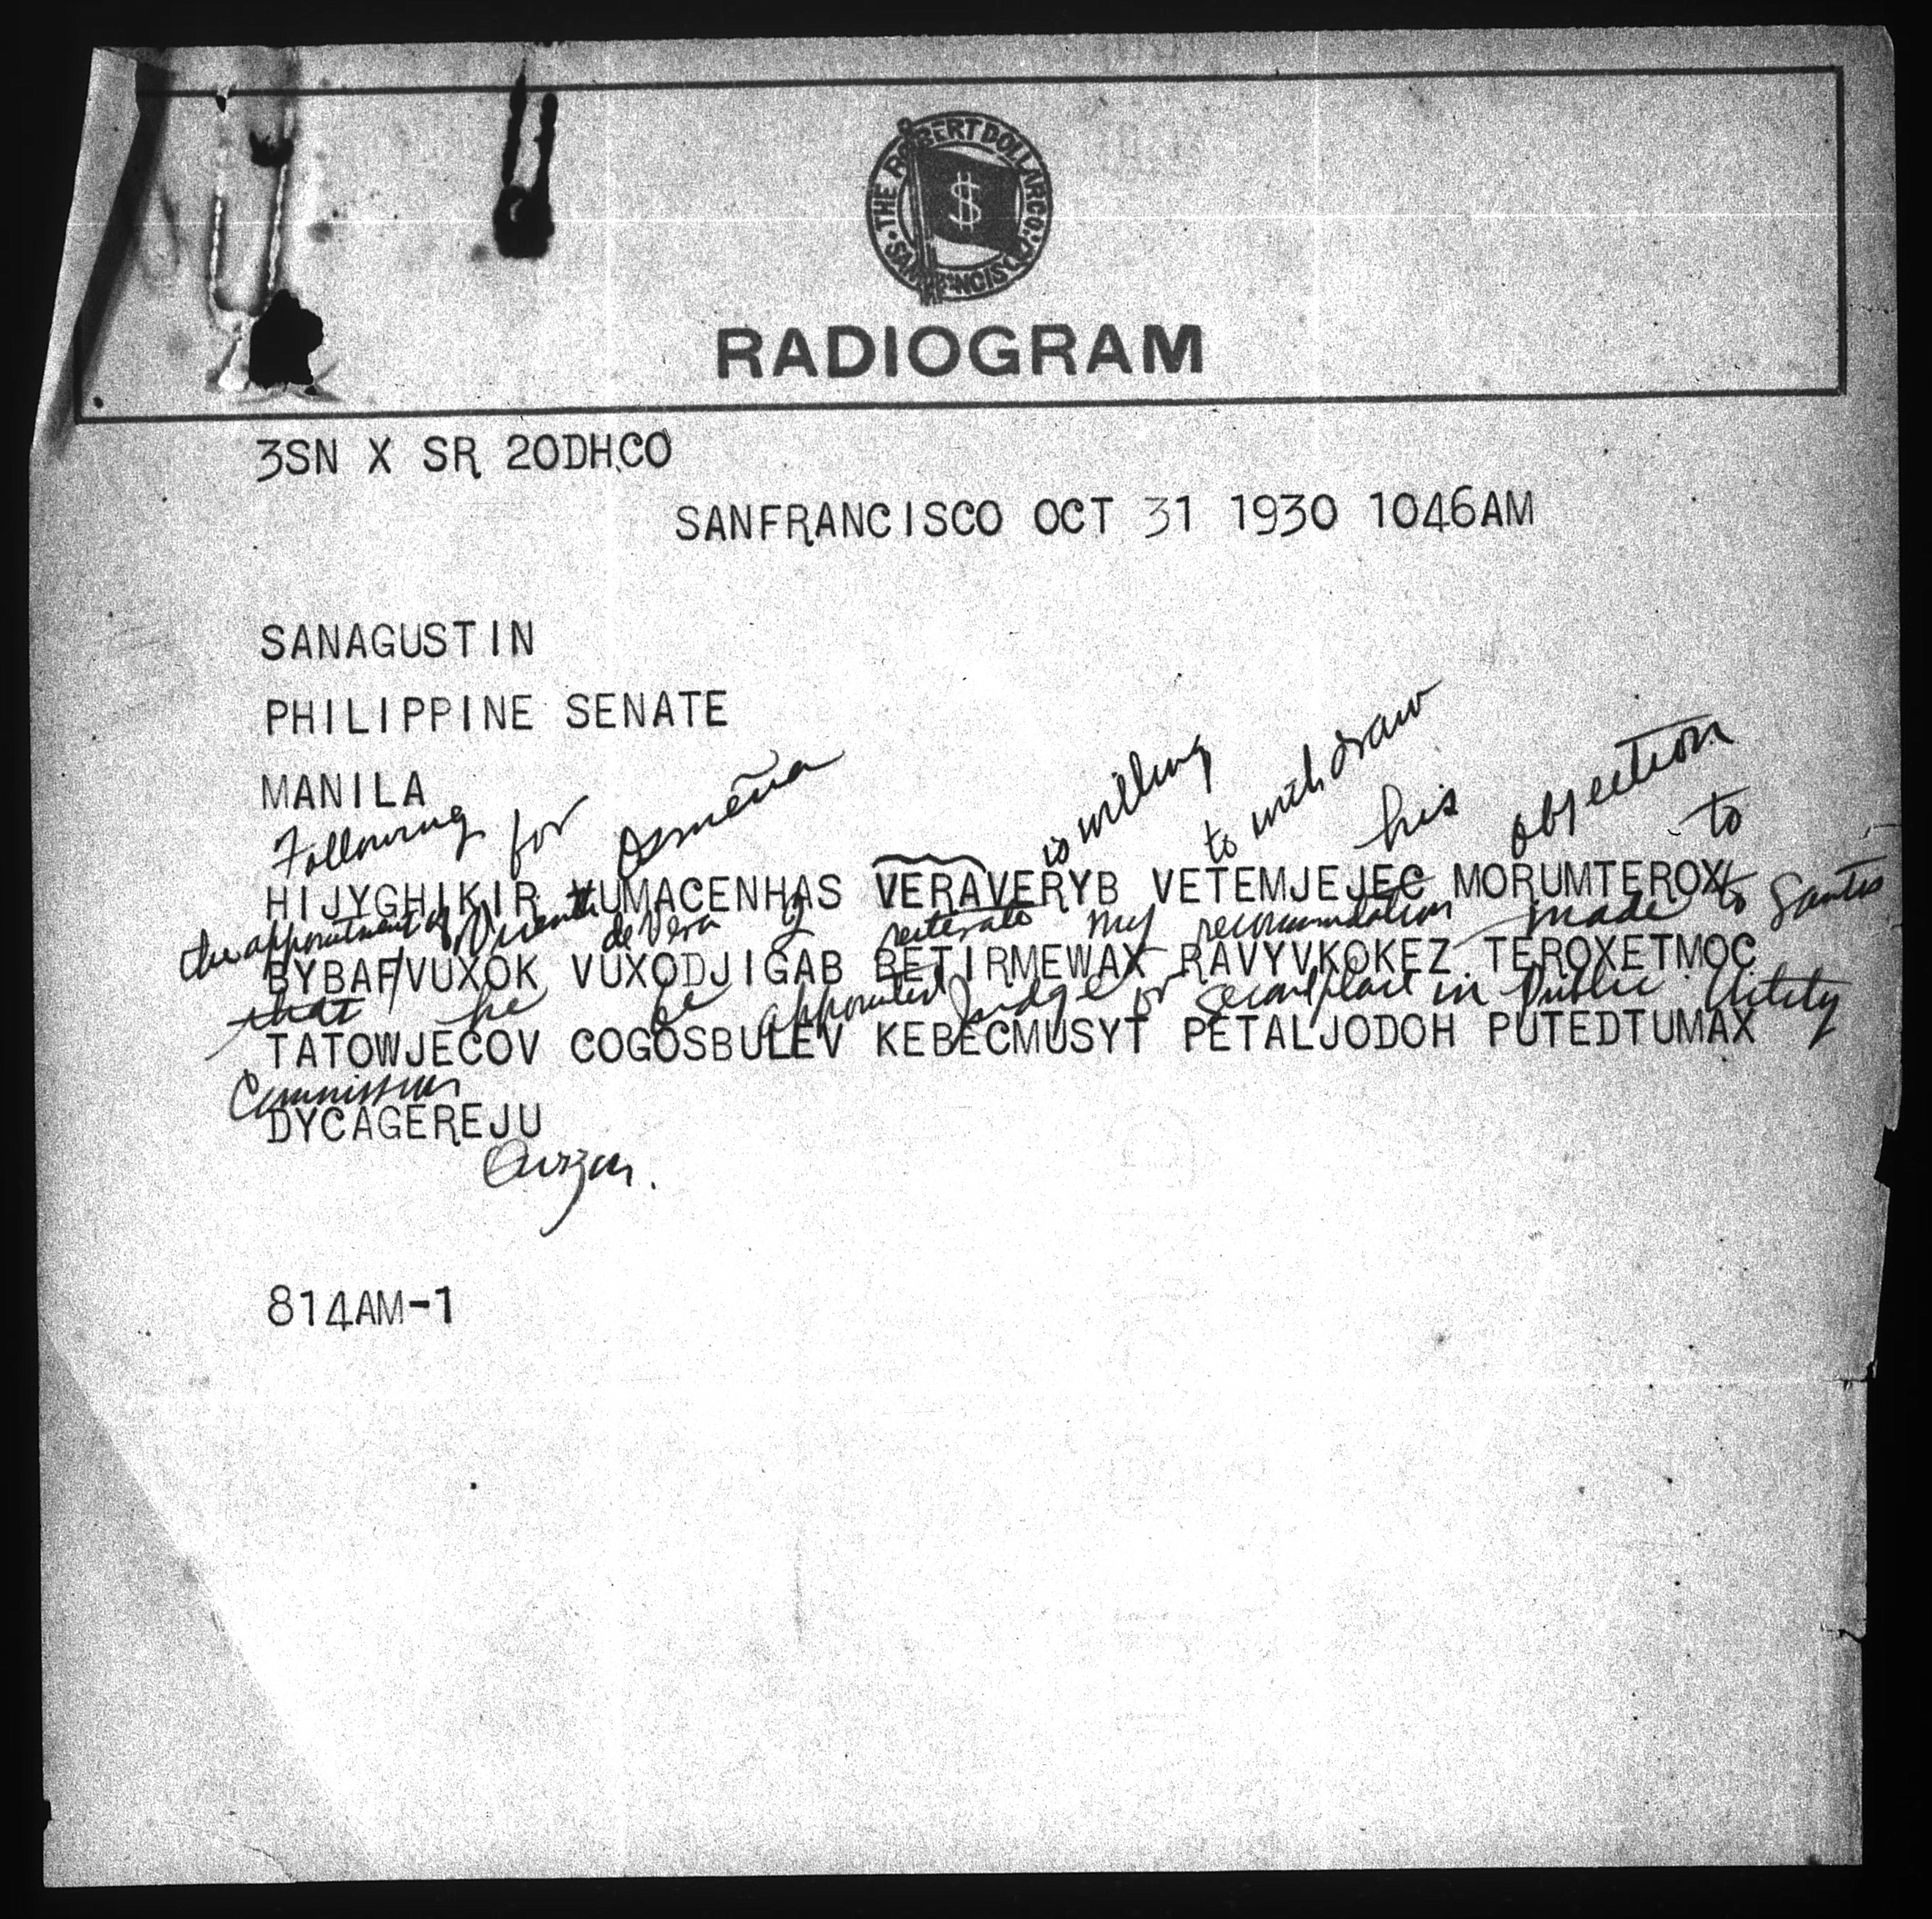 THE ROBERT DOLLAR CO.
SAN FRANCISCO
$
RADIOGRAM
3SN X SR 20DH.CO
SANFRANCISCO OCT 31 1930 1046AM
SANAGUSTIN
PHILIPPINE SENATE
MANILA
Following for Osmeña is willing to withdraw his objection to
HIJYGHIKIR YUMACENHAS VERAVERYB VETEMJEJEC MORUMTEROX
the appointment of Vicente de Vera I reiterate my recommendation made to Santos
BYBAF/VUXOK VUXODJIGAB BETIRMEWAX RAVYVKOKEZ TEROXETMOC
that he be appointed Judge or second place in Public Utility
TATOWJECOV COGOSBULEV KEBECMUSYT PETALJODOH PUTEDTUMAX
Commission
DYCAGEREJU
Quezon.
814AM-1